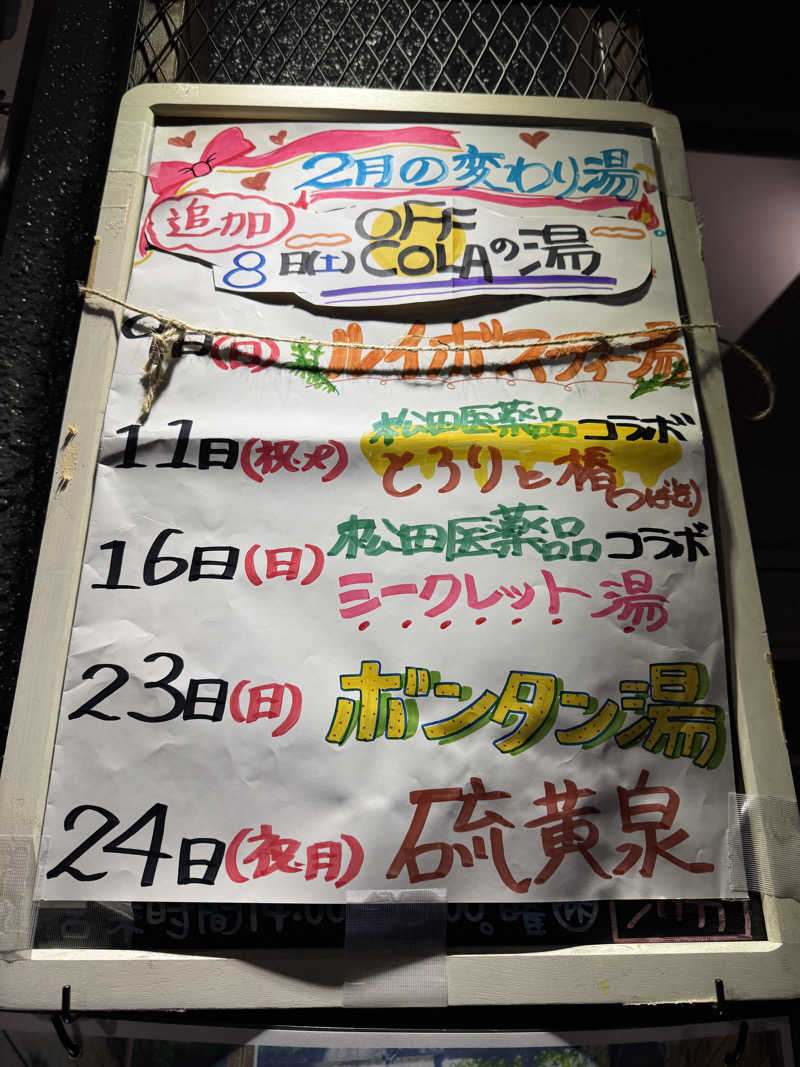 2月の変わり湯
追加
8日(土) OFF COLAの湯
9日(日) ルイボスティー湯
11日(祝・火) 松田医薬品コラボ
とろりと椿(つばき)
16日(日) 松田医薬品コラボ
シークレット湯
23日(日) ボンタン湯
24日(祝・月) 硫黄泉
営業時間14:00